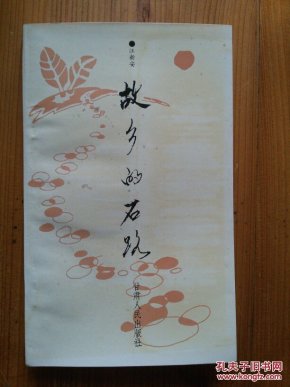 ●江新安
故乡的石路
甘肃人民出版社
孔夫子旧书网
KONGFZ.COM